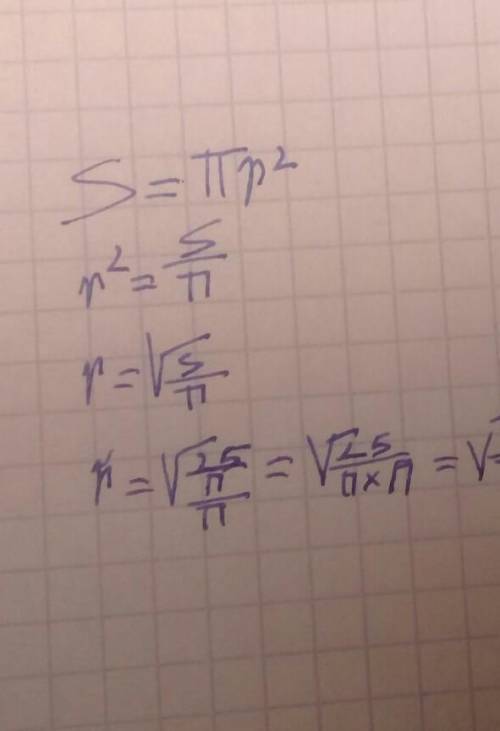 S = πr²
r² = S/π
r = √(S/π)
r = √((25/π)/π) = √(25/(π×π)) = √